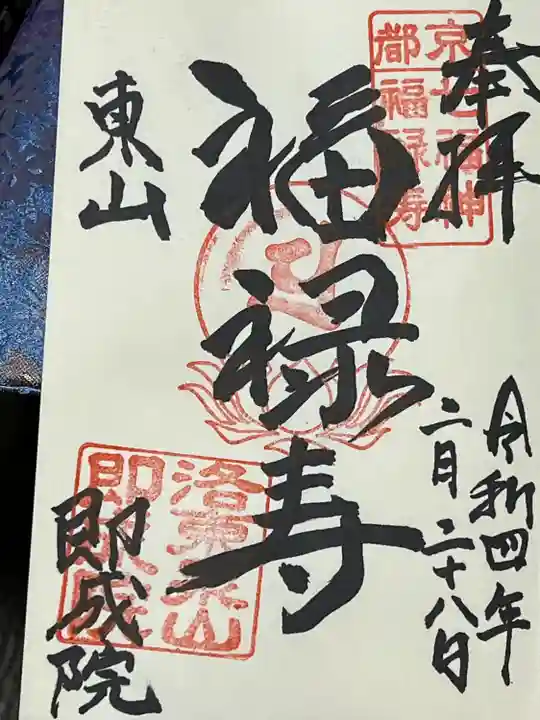 奉拝
京都七福神
福禄寿
令和四年
二月二十八日
福禄寿
東山
洛東東山
即成院
即成院